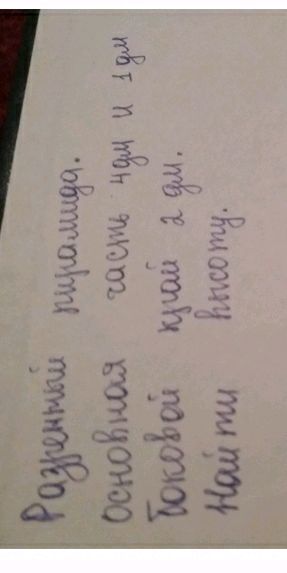 Разренный пирамида.
основная часть 4дм и 1дм
боковой край 2 дм.
Найти высоту.